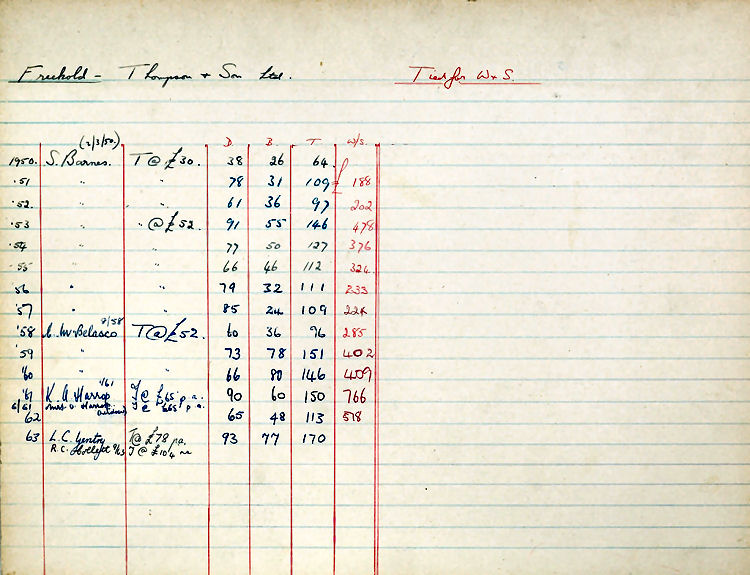 Freehold - Thompson & Son Ltd. Tied for W & S.
(2/3/50) D. B. T W/S.
1950. S. Barnes. T @ £30. 38 26 64
'51 " " 78 31 109 188
'52. " " 61 36 97 202
'53 " " @ £52. 91 55 146 478
'54 " " 77 50 127 376
'55 " " 66 46 112 324
'56 " " 79 32 111 233
'57 " " 85 24 109 224
'58 McBelasco 9/58 T @ £52. 60 36 96 285
'59 " " 73 78 151 402
'60 " " 66 80 146 409
'61 K. A. Harrop 1/61 T @ £65 p.a. 90 60 150 766
6/61 Mrs Harrop (widow) T @ £65 p.a.
62 65 48 113 518
63 L.C. Gentry T @ £78 pa. 93 77 170
R.C. 9/63 T @ £104